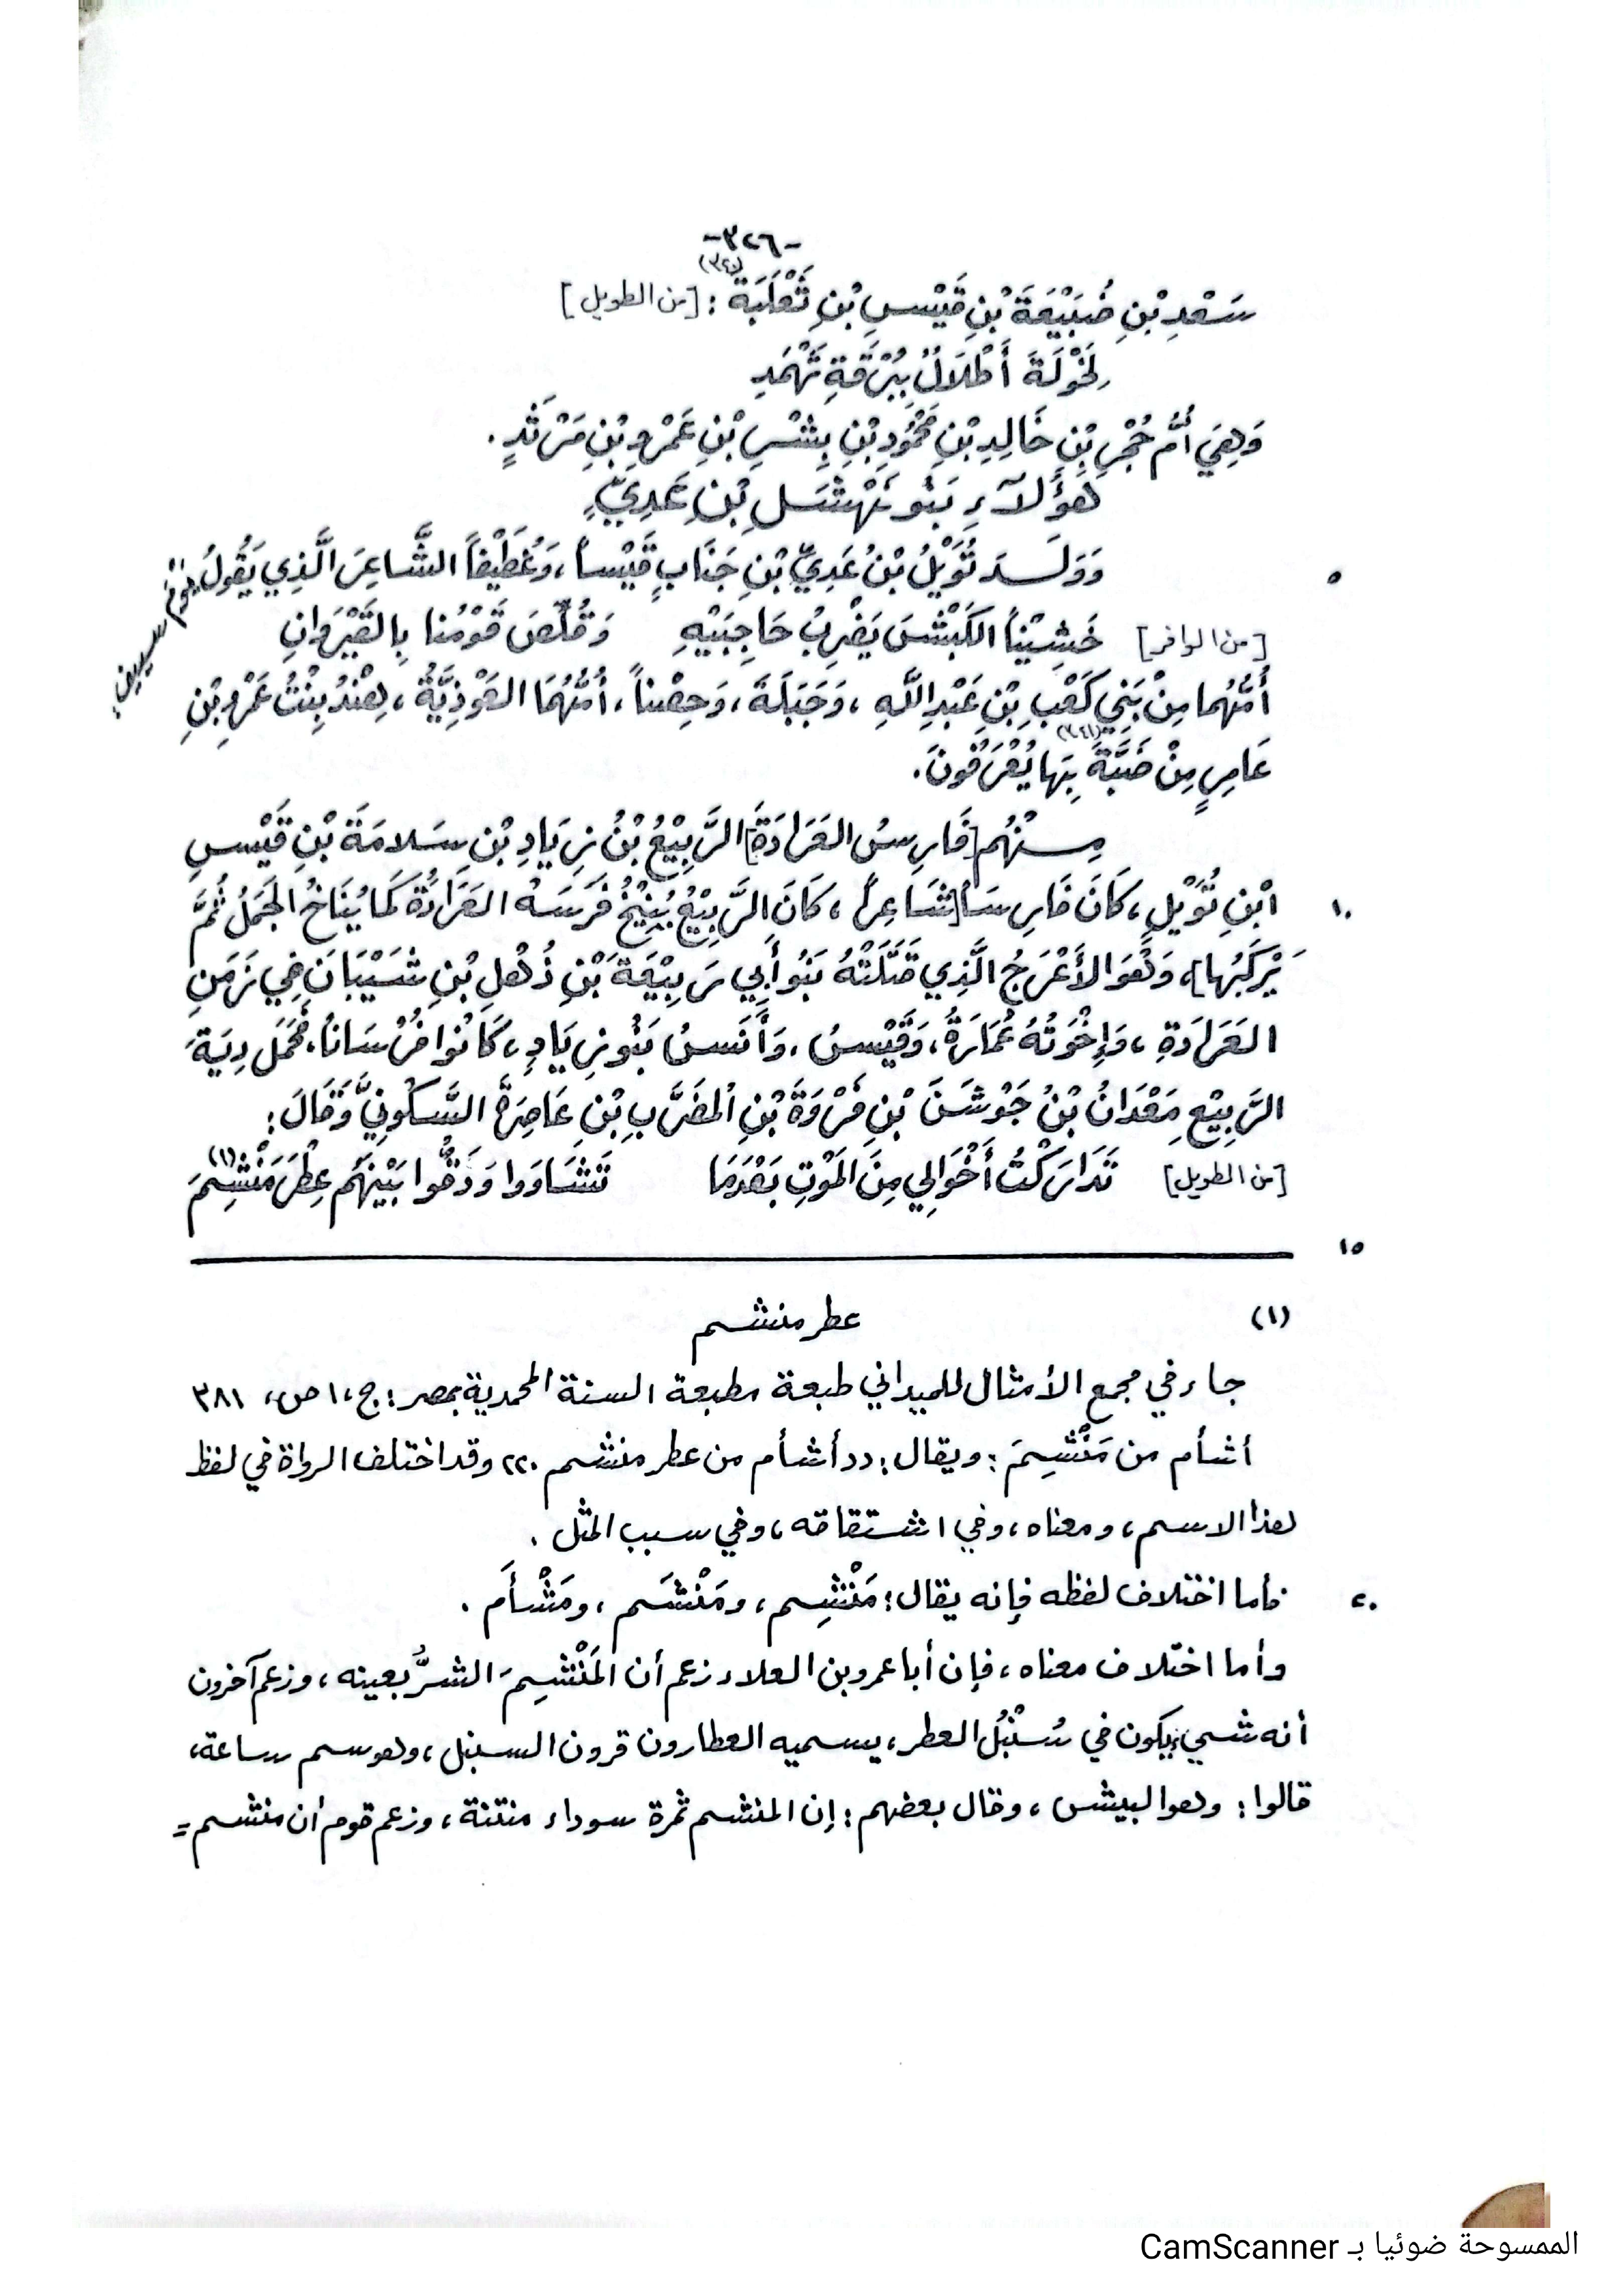 -٣٢٦-
سَعْدِ بْنِ ضُبَيْعَةَ بْنِ قَيْسِ بْنِ ثَعْلَبَةَ (٣٤٠) : [من الطويل]
لِخَوْلَةَ أَطْلَالٌ بِبُرْقَةِ ثَهْمَدِ
وَهِيَ أُمُّ حُجْرِ بْنِ خَالِدِ بْنِ مَحْمُودِ بْنِ بِشْرِ بْنِ عَمْرِو بْنِ مَرْثَدٍ .
هَؤُلَآءِ بَنُو نَهْشَلِ بْنِ عَدِيٍّ
٥ وَوَلَــدَ تُوَيْلُ بْنُ عَدِيِّ بْنِ جَنَابٍ قَيْساً ، وَغُطَيْفاً الشَّاعِرَ الَّذِي يَقُولُ يَوْمَ سِيفٍ:
[من الوافر] خَشِيْنا الكَبْشَ يَضْرِبُ حَاجِبَيْهِ وَقُلِّصَ قَوْمُنا بِالقَيْرَوانِ
أُمُّهُما مِنْ بَنِي كَعْبِ بْنِ عَبْدِ اللَّهِ ، وَجَبَلَةَ ، وَحِصْناً ، أُمُّهُمَا العَوْذِيَّةُ ، هِنْدُ بِنْتُ عَمْرِو بْنِ
عَامِرٍ مِنْ ضَبَّةَ (٣٤١) بِهَا يُعْرَفُونَ .
مِــنْهُم [فَارِسُ العَرَادَةِ] الرَّبِيْعُ بْنُ زِيَادِ بْنِ سَلامَةَ بْنِ قَيْسِ
١٠ ابْنِ تُوَيْلٍ ، كَانَ فَارِسَاً [شَاعِراً ، كَانَ الرَّبِيْعُ يُنِيْخُ فَرَسَهُ العَرَادَةَ كَما يُنَاخُ الجَمَلُ ثُمَّ
يَرْكَبُها] ، وَهُوَ الأَعْرَجُ الَّذِي قَتَلَتْهُ بَنُو أَبِي رَبِيْعَةَ بْنِ ذُهْلِ بْنِ شَيْبَانَ فِي زَمَنِ
العَرَادَةِ ، وَإِخْوَتُهُ عُمَارَةُ ، وَقَيْسُ ، وَأَنَسُ بَنُو زِيَادٍ ، كَانُوا فُرْسَاناً . فَحَمَلَ دِيَةَ
الرَّبِيْعِ مَعْدَانُ بْنُ جَوْشَنَ بْنِ فَرْوَةَ بْنِ المُضَرَّبِ بْنِ عَاصِرَةَ السَّكُونِيَّ وَقَالَ :
[من الطويل] تَدَارَكْتُ أَخْوَالِي مِنَ المَوْتِ بَعْدَمَا تَشَاوَوا وَدَقُّوا بَيْنَهُم عِطْرَ مَنْشِمَ (١)
١٥
(١) عطر منشم
جاء في مجمع الأمثال للميداني طبعة مطبعة السنة المحمدية بمصر : ج ، ١ ص ، ٣٨١
أشأم من مَنْشِمَ : ويقال : «أشأم من عطر منشم .» وقد اختلف الرواة في لفظ
هذا الاسم ، ومعناه ، وفي اشتقاقه ، وفي سبب المثل .
٢٠ فأما اختلاف لفظه فإنه يقال : مَنْشِم ، ومَنْشَم ، ومَشْأَم .
وأما اختلاف معناه ، فإن أبا عمرو بن العلاء زعم أن المَنْشِمَ الشرُّ بعينه ، وزعم آخرون
أنه شيء يكون في سُنْبُل العطر ، يسميه العطارون قرون السنبل ، وهو سم ساعة ،
قالوا : وهو البيش ، وقال بعضهم : إن المنشم ثمرة سوداء منتنة ، وزعم قوم أن منشم =
الممسوحة ضوئيا بـ CamScanner